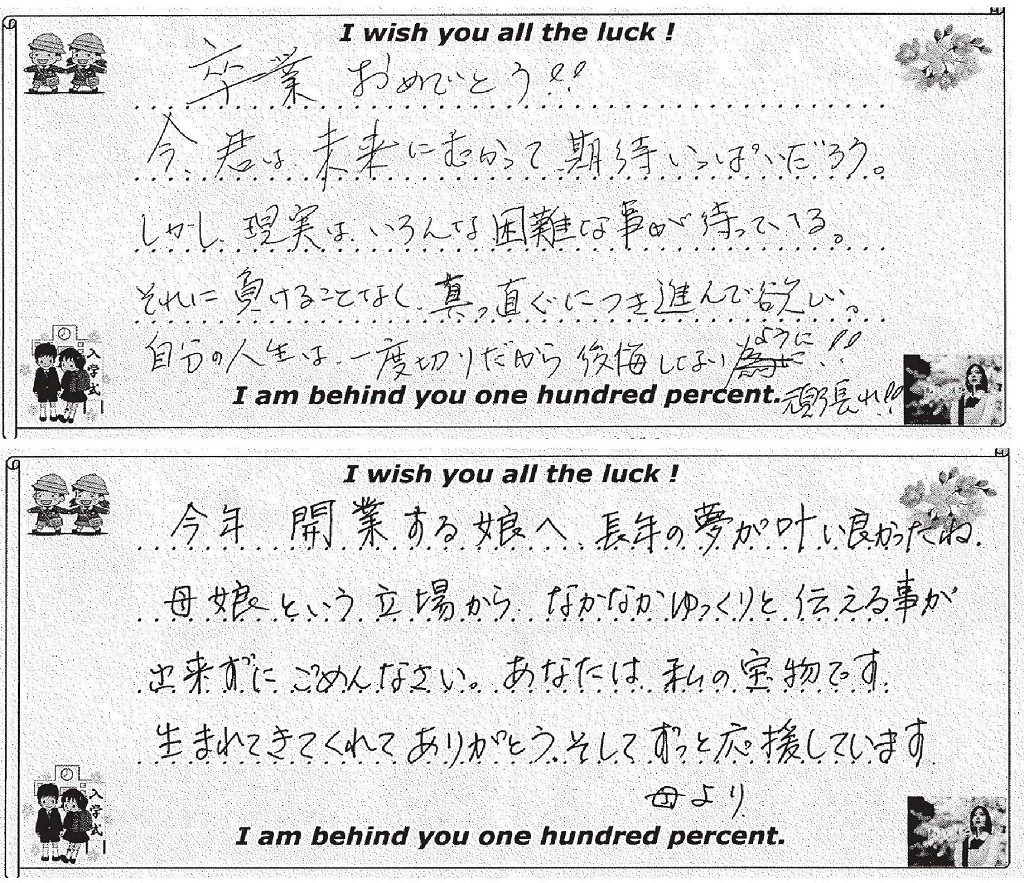 I wish you all the luck !
卒業 おめでとう!!
今、君は、未来にむかって期待いっぱいだろう。
しかし、現実は、いろんな困難な事が待っている。
それに負けることなく、真っ直ぐにつき進んで欲しい。
自分の人生は、一度切りだから後悔しないように!!
I am behind you one hundred percent.
頑張れ!!
入学式
I wish you all the luck !
今年 開業する娘へ、長年の夢が叶い良かったね.
母娘という立場から、なかなかゆっくりと伝える事が
出来ずに ごめんなさい。あなたは 私の宝物です.
生まれてきてくれて ありがとう.そして ずっと応援しています.
母より
I am behind you one hundred percent.
入学式